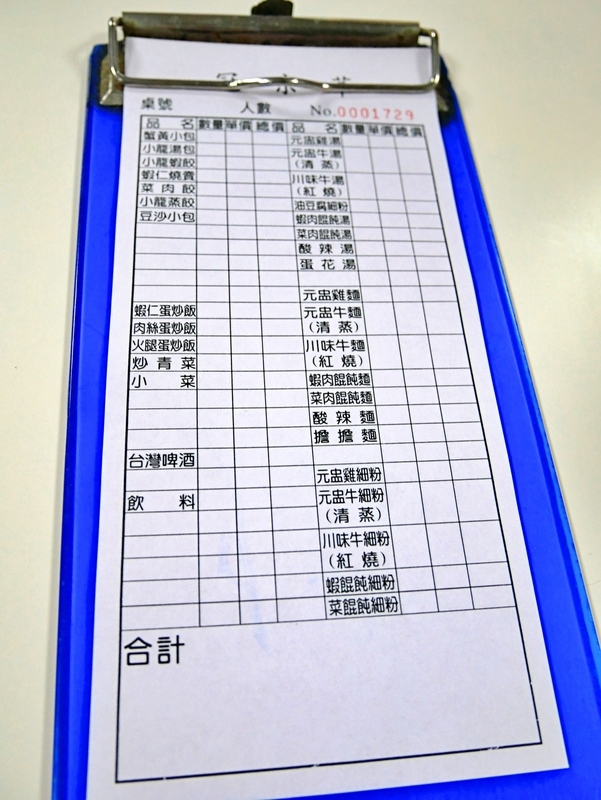 桌號 人數 No.0001729
品名 數量 單價 總價 品名 數量 單價 總價
蟹黃小包
小龍湯包
小龍蝦餃
蝦仁燒賣
菜肉餃
小龍蒸餃
豆沙小包
蝦仁蛋炒飯
肉絲蛋炒飯
火腿蛋炒飯
炒青菜
小菜
台灣啤酒
飲料
元盅雞湯
元盅牛湯
(清蒸)
川味牛湯
(紅燒)
油豆腐細粉
蝦肉餛飩湯
菜肉餛飩湯
酸辣湯
蛋花湯
元盅雞麵
元盅牛麵
(清蒸)
川味牛麵
(紅燒)
蝦肉餛飩麵
菜肉餛飩麵
酸辣麵
擔擔麵
元盅雞細粉
元盅牛細粉
(清蒸)
川味牛細粉
(紅燒)
蝦餛飩細粉
菜餛飩細粉
合計